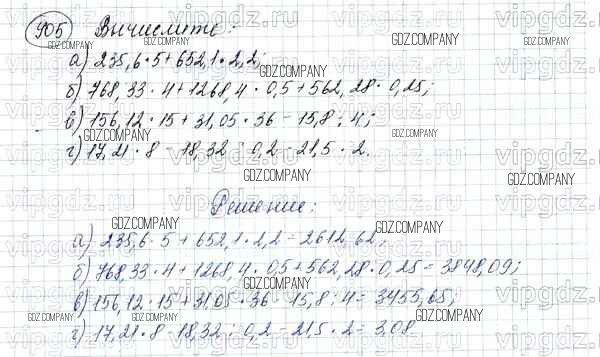 905 Вычислите:
а) 235,6 · 5 + 652,1 · 2,2;
б) 768,33 · 4 + 1268,4 · 0,5 + 562,28 · 0,25;
в) 156,12 · 15 + 31,05 · 36 - 15,8 : 4;
г) 17,21 · 8 - 18,32 : 0,2 - 21,5 · 2.
Решение:
а) 235,6 · 5 + 652,1 · 2,2 = 2612,62;
б) 768,33 · 4 + 1268,4 · 0,5 + 562,28 · 0,25 = 3848,09;
в) 156,12 · 15 + 31,05 · 36 - 15,8 : 4 = 3455,65;
г) 17,21 · 8 - 18,32 : 0,2 - 21,5 · 2 = 3,08
GDZ.COMPANY
vipgdz.ru